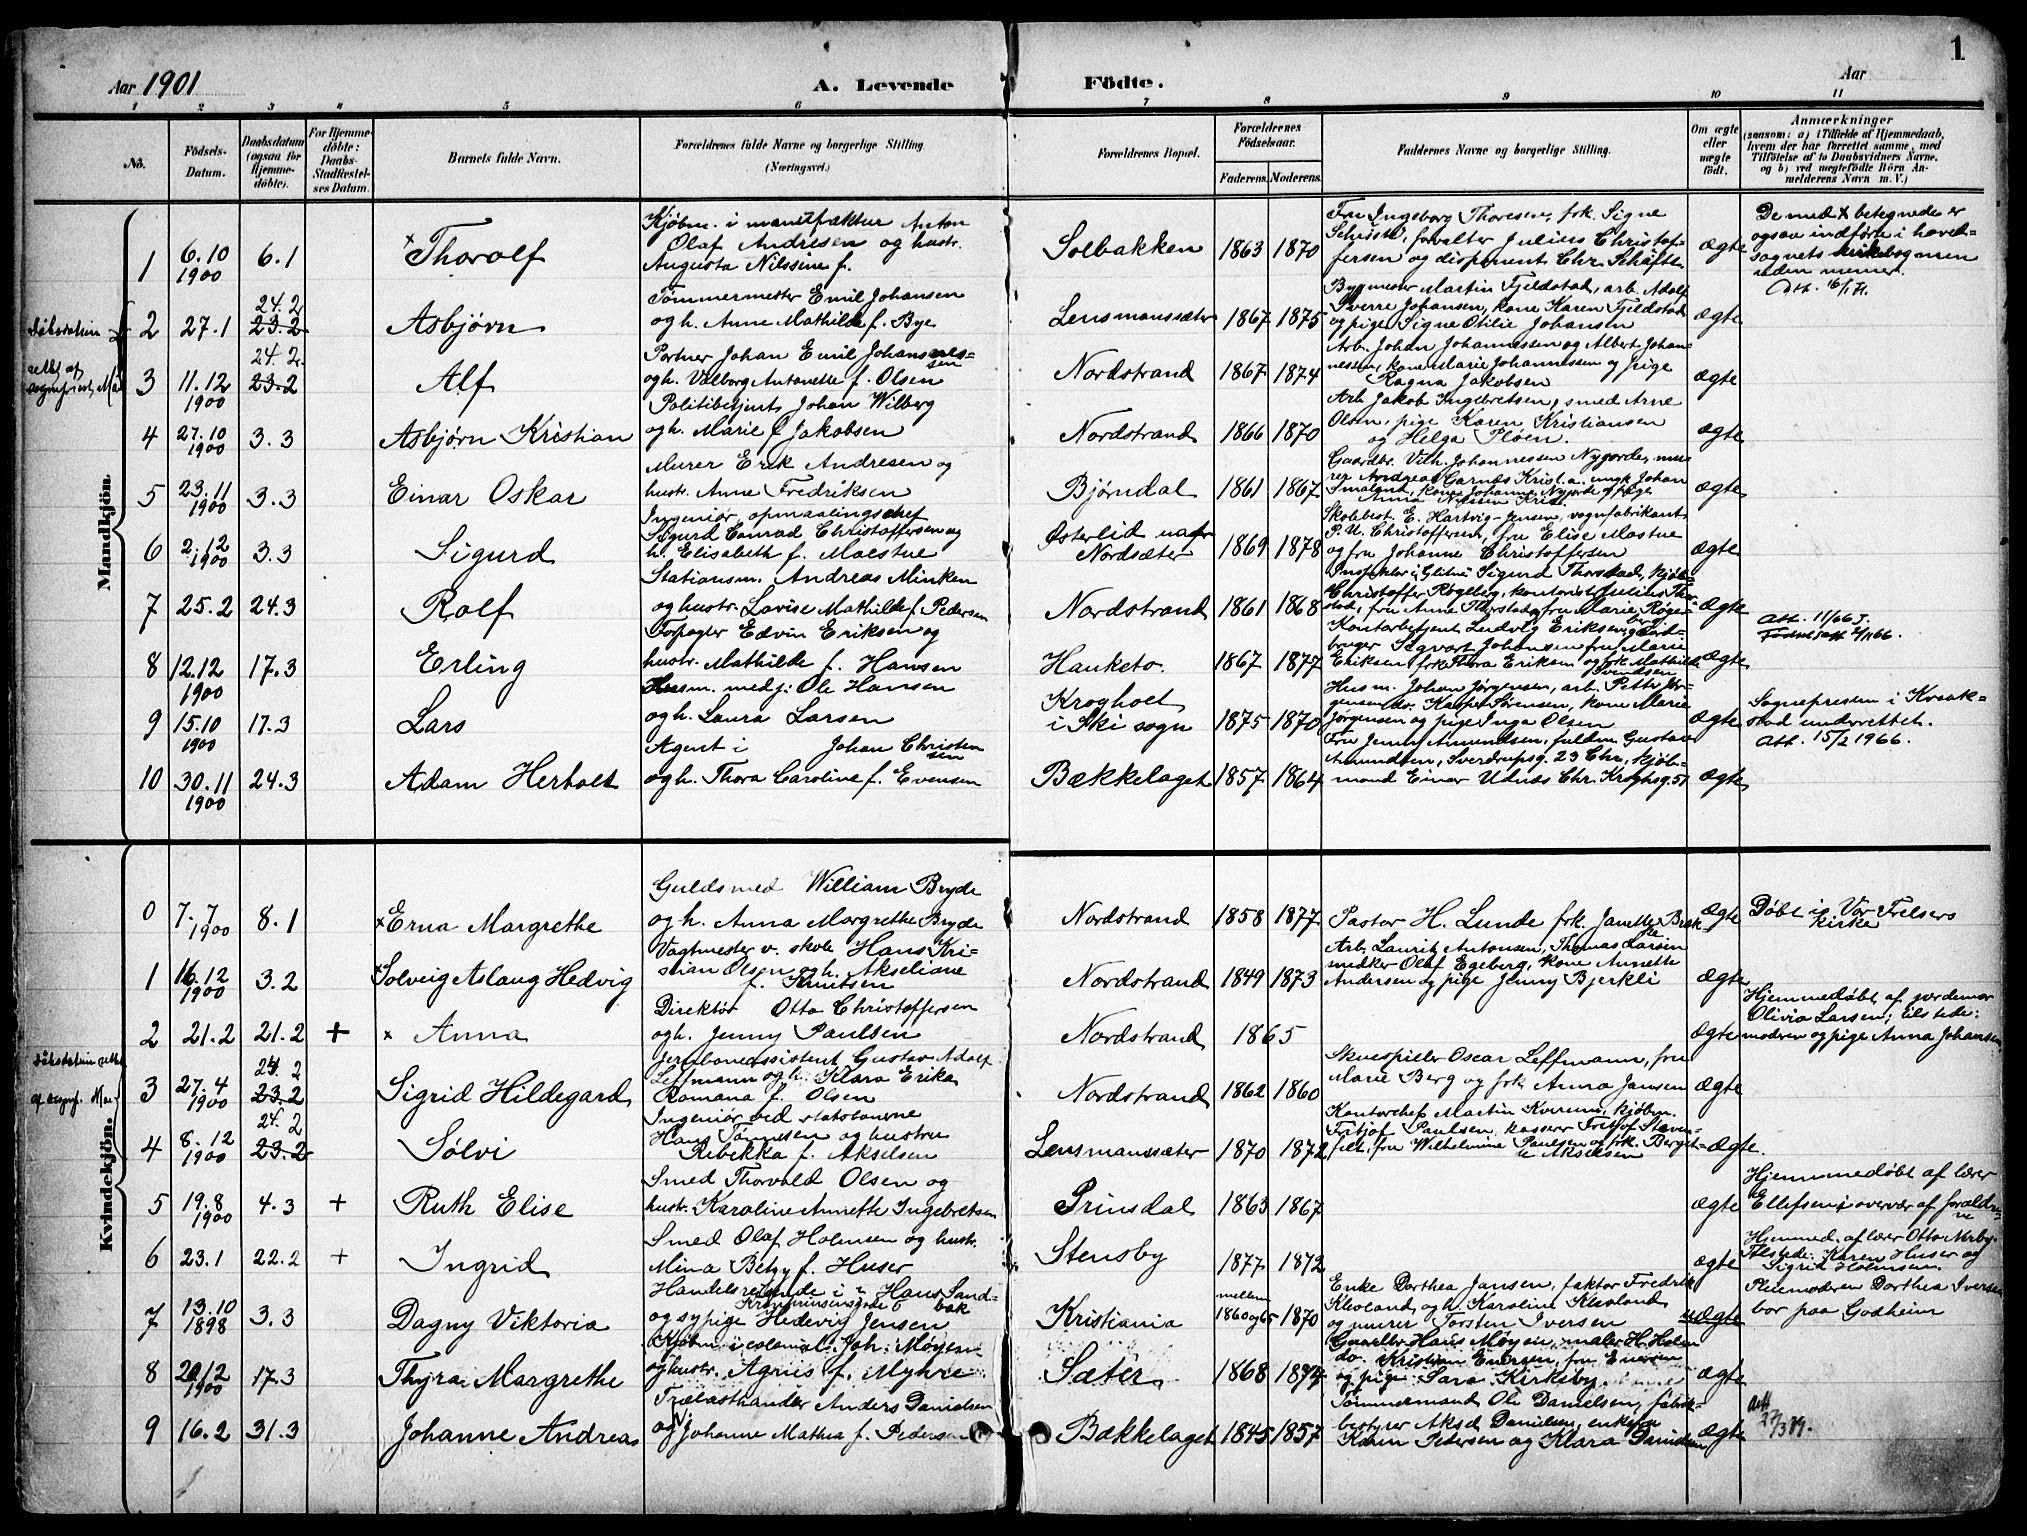 1
Aar 1901
A. Levende
Födte.
Aar
1 2 3 4 5 6 7 8 9 10 11
No.
Födsels-Datum.
Daabsdatum (ogsaa for Hjemme-döbte).
For Hjemme-döbte: Daabs-Stadfæstel-ses Datum.
Barnets fulde Navn.
Forældrenes fulde Navne og borgerlige Stilling.
(Næringsvei.)
Forældrenes Bopæl.
Forældrenes Födselsaar.
Faderens. Moderens.
Faddernes Navne og borgerlige Stilling.
Om ægte eller uægte födt.
Anmærkninger
(saasom: a) i Tilfælde af Hjemmedaab, hvem der har forrettet samme, med Tilföielse af to Daabsvidners Navne, og b) ved uægtefödte Börn An-melderens Navn m. V.)
Mandkjön.
1 6.10 1900 6.1 × Thorolf
Kjøbm. i manufaktur Anton
Olaf Andresen og hustr.
Augusta Nilssine f.
Solbakken 1863 1870
Fru Ingeborg Thoresen, frk. Signe
forvalter Julius Christof-
fersen og disponent Chr.
ægte
De med × betegnede er
ogsaa indførte i hoved-
sognets kirkebog men
uden numer.
2 27.1 24.2 23.2 Asbjørn
Tømmermester Emil Johansen
og h. Anne Mathilde f. Bye
Lensmanssæter 1867 1875
Bygmester Martin Fjeldstad, arb. Adolf
Sverre Johansen, kone Karen Fjeldstad
og pige Signe Otilie Johansen
ægte
3 11.12 1900 24.2 23.2 Alf
Portner Johan Emil Johannes-
sen
og h. Valborg Antonette f. Olsen
Nordstrand 1867 1874
Arb. Johan Johannessen og Albert Johan-
nessen, kone Marie Johannessen og pige
Ragna Jakobsen
ægte
4 27.10 1900 3.3 Asbjørn Kristian
Politibetjent Johan Wilberg
og h. Marie f. Jakobsen
Nordstrand 1866 1870
Arb. Jakob Ingebretsen, smed Arne
Olsen, pige Karen Kristiansen
og Helga Ploen.
ægte
5 23.11 1900 3.3 Einar Oskar
Murer Erik Andresen og
hustr. Anne Fredriksen
Bjørndal 1861 1867
Gaardbr. Vilh. Johannessen Nygorde, mu-
rer Andreas Garnæs Krist.a. ungk Johan
ægte
6 2.12 1900 3.3 Sigurd
Ingeniør, opmaalingschef
Sigurd Conrad Christoffersen og
h. Elisabeth f. Moestue
Østerlid
Nordsæter 1869 1878
Skolebest. E. Hartvig-Jensen, vognfabrikant
P. U. Christoffersen, fru Elise Mostue
og fru Johanne Christoffersen
ægte
7 25.2 24.3 Rolf
Stationsm. Andreas Minken
og hustr. Lovise Mathilde f. Pedersen
Nordstrand 1861 1868
Sigurd Thorstad, kjøb-
Christoffer Røgeberg, kontorist Julius Thor-
stad, fru Anne Thorstad, fru Marie Røge-
berg
ægte
Att. 11/6 65.
8 12.12 1900 17.3 Erling
Forpagter Edvin Eriksen og
hustr. Mathilde f. Hansen
Hauketo. 1867 1877
Kontorbetjent Ludvig Eriksen, gaard-
bruger Sigvart Johansen fru Marie
Eriksen, frk Thora Eriksen og frk. Mathilde
Svendsen
ægte
9 15.10 1900 17.3 Lars
Husm. med j: Ole Hansen
og h. Laura Larsen
Krogholt
i Ski sogn 1875 1870
Husm. Johan Jørgensen, arb. Petter Jør-
gensen, do. Kasper Sørensen, kone Marie
Jørgensen og pige Inga Olsen
ægte
Sognepresten i Kraak-
stad underrettet.
Att. 15/2 1966.
10 30.11 1900 24.3 Adam Herbolt
Agent i Johan Christen
sen
og h. Thora Caroline f. Evensen
Bækkelaget 1857 1864
Fru Jenny Amundsen, fuldm Gustav
Amundsen, Sverdrupsg. 23 Chr., kjøb-
mand Einar Udnæs Chr. Kroghsg. 51
ægte
Kvindekjön.
0 7.7 1900 8.1 × Erna Margrethe
Guldsmed William Bryde
og h. Anna Margrethe Bryde
Nordstrand 1858 1877
Pastor H. Lunde frk. Janette Brek-
ke
ægte
Døbt i Vor Frelsers
kirke
1 16.12 1900 3.2 × Solveig Aslaug Hedvig
Vagtmester v. skole Hans Kri-
stian Olsen og h. Akseliane
f. Knutsen
Nordstrand 1849 1873
Arb. Laurits Antonsen, Thomas Larsen
snedker Olaf Egeberg, kone Annette
Andersen og pige Jenny Bjerkli
ægte
2 21.2 21.2 + × Anna
Direktør Otto Christoffersen
og h. Jenny Paulsen
Nordstrand 1865
ægte
Hjemmedøbt af jordemor
Olivia Larsen; tilstede:
modren og pige Anna Johansen
3 27.4 1900 24.2 23.2 Sigrid Hildegard
Jernbaneassistent Gustav Adolf
Leffmann og h. Klara Erika
Romana f. Olsen
Nordstrand 1862 1860
Skuespiller Oscar Leffmann, fru
Marie Berg og frk. Anna Jansen
ægte
4 8.12 1900 24.2 23.2 Sølvi
Ingeniør ved statsbanerne
Hans Tønnesen og hustru
Rebekka f. Akselsen
Lensmanssæter 1870 1872
Kontorchef Martin Kverum, kjøbm.
Fritjof Paulsen, kasserer Fritjof Staven-
felt, fru Wilhelmine Paulsen og frk. Berget-
te Akselsen
ægte.
5 19.8 1900 4.3 + Ruth Elise
Smed Thorvald Olsen og
hustr. Karoline Annette Ingebretsen
Prinsdal 1863 1867
ægte
Hjemmedøbt af lærer
Ellefsen i overvær af forældre-
ne
6 23.1 22.2 + Ingrid
Smed Olaf Holmsen og hustr.
Mina Betzy f. Huser
Stensby 1877 1872
ægte
Hjemmed. af lærer Otto Nerby.
Tilstede: Karen Huser og
Sigrid Holmsen.
7 13.10 1898 3.3 Dagny Viktoria
Handelsreisende i Hans Sand-
bak
og sypige Hedevig Jensen
Kristiania mellem 1860 og 65 1870
Enke Dorthea Jansen, faktor Fredrik
Kleveland, og h. Karoline Kleveland
og murer Torsten Iversen
uægte
Pleiemoderen Dorthea Iversen
bor paa Godheim
8 20.12 1900 17.3 Thyra Margrethe
Kjøbm. i colonial. Joh. Møyen
og hustr. Agnes f. Myhre
Sæter 1868 1874
Hans Møyen, maler H. Holm
do. Kristian Enersen, fru Enersen
og pige Sara Kirkeby.
ægte
9 16.2 31.3 Johanne Andrea
Trælasthandler Anders Danielsen
og Johanne Mathea f. Pedersen
Bækkelaget 1845 1857
Tømmermand Ole Danielsen, fabrik-
bestyrer Aksel Danielsen, enkefru
Karen Pedersen og Klara Danielsen
ægte